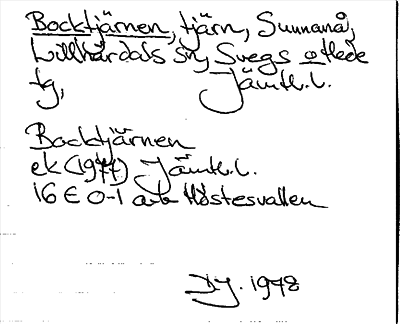 Bocktjärnen, tjärn, Sunnanå,
Lillhärdals sn, Svegs o Hede
tg, Jämtl.l.
Bocktjärnen
ek (1977) Jämtl.l.
16 E 0-1 a-b Höstesvallen
DJ. 1978